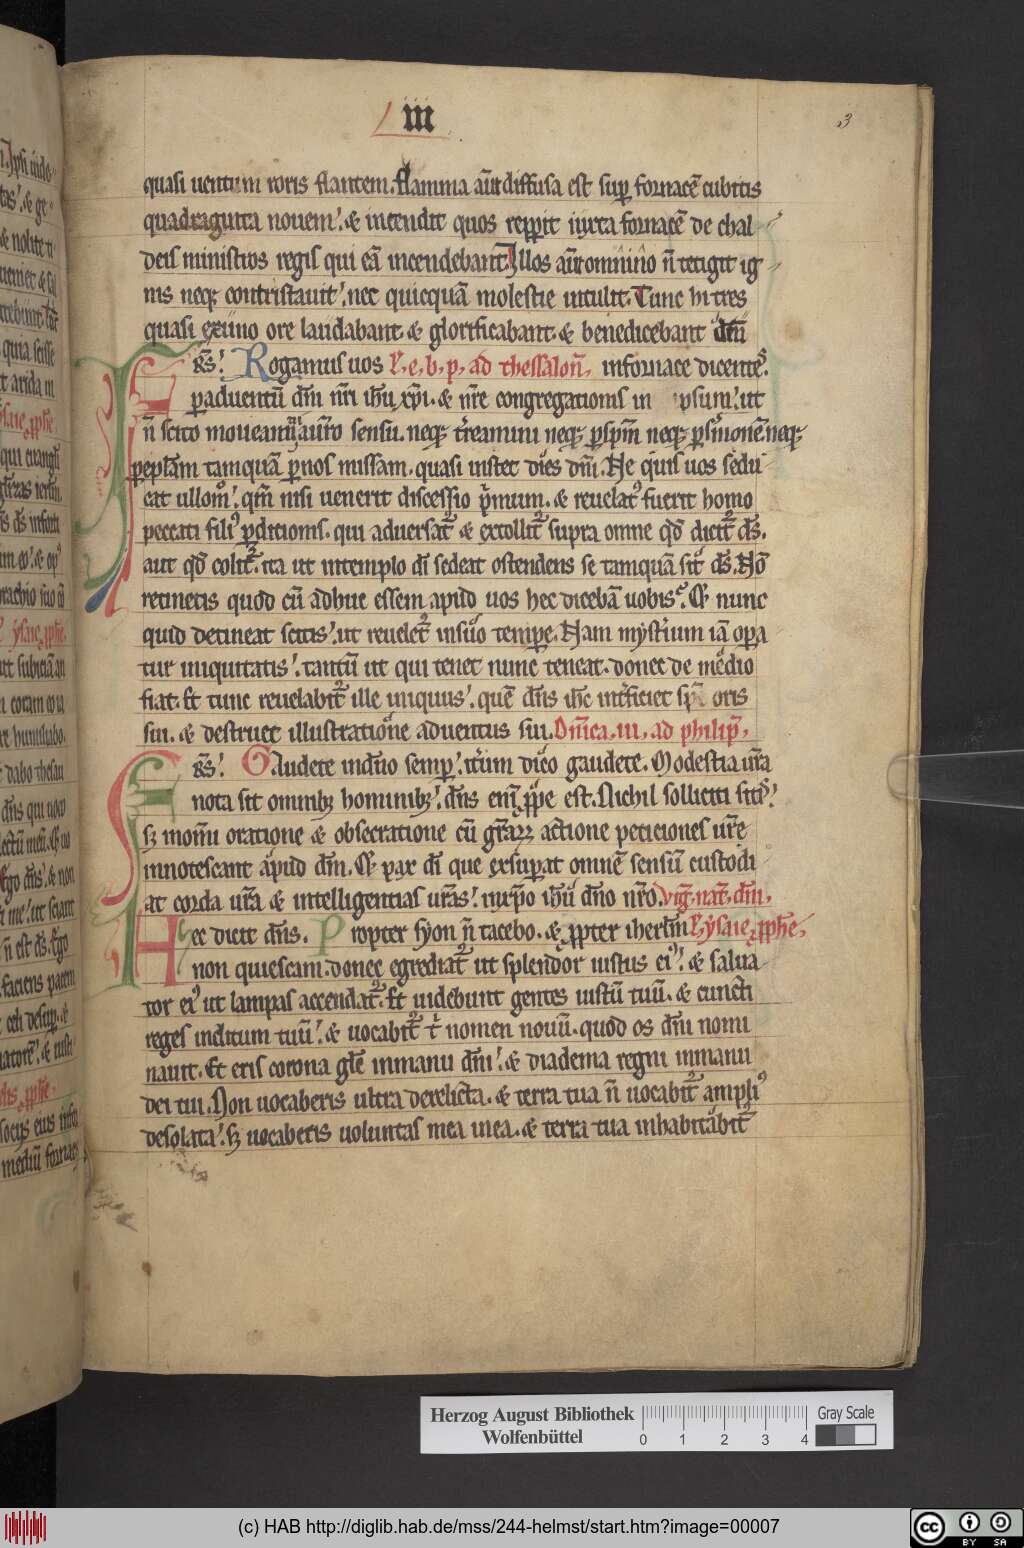 iii
3
quasi uentum roris flantem. flamma aūt diffusa est sup̄ fornacē cubitis
quadraginta nouem. & incendit quos repp̄it iuxta fornacē de chal
deis ministros regis qui eā incendebant. Illos aūt omnino n̄ tetigit ig
nis neq; contristauit. nec quicquā molestie intulit. Tunc hi tres
quasi ex uno ore laudabant. & glorificabant. & benedicebant dm̄
Rogamus uos L. e. b. p. ad thessalon̄. in fornace dicentes.
p aduentū dn̄i nr̄i ih̄u xp̄i. & nr̄e congregationis in ipsum. ut
n̄ scito moueamī a ur̄o sensu. neq; t̄reamini neq; p sp̄m neq; p smonē neq;
p ep̄lam tamquā p nos missam. quasi instet dies dn̄i. Ne quis uos sedu
cat ullo mō. qm̄ nisi uenerit discessio p̄mum. & reuelat' fuerit homo
peccati fili' p̄ditionis. qui aduersat' & extollit' supra omne qd̄ dicit' ds̄.
aut qd̄ colit'. ita ut in templo dī sedeat ostendens se tamquā sit ds̄. Nō
retinetis quod cū adhuc essem apud uos hec dicebā uobis. Et nunc
quid detineat scitis. ut reuelet' in suo tempe. Nam mysterium iā opa
tur iniquitatis. tantū ut qui tenet nunc teneat. donec de medio
fiat. Et tunc reuelabit' ille iniquus. quē dn̄s ih̄c int̄ficiet sp̄u oris
sui. & destruet illustratione aduentus sui. Dn̄ica. iii. ad philip̄.
Gaudete in dn̄o semp̄. it̄um dico gaudete. Modestia ur̄a
nota sit omnib; hominib;. dn̄s eni p̄pe est. Nichil solliciti sitis.
s; in om̄i oratione & obsecratione cū gr̄arum actione peticiones ur̄e
innotescant apud dm̄. Et pax dī que exsup̄at omnē sensū custodi
at corda ur̄a & intelligentias ur̄as. in xp̄o ih̄u dn̄o nr̄o. vig. nat. dn̄i.
Hec dicit dn̄s. Propter syon n̄ tacebo. & p̄pter iherlm̄ L. ysaie p̄phe.
non quiescam. donec egrediat' ut splendor iustus ei'. & salua
tor ei' ut lampas accendat'. Et uidebunt gentes iustū tuū. & cuncti
reges inclitum tuū. & uocabit' t' nomen nouū. quod os dn̄i nomi
nauit. Et eris corona gl̄e in manu dn̄i. & diadema regni in manu
dei tui. Non uocaberis ultra derelicta. & terra tua n̄ uocabit' ampli'
desolata. s; uocaberis uoluntas mea in ea. & terra tua inhabitabit'
Herzog August Bibliothek
Wolfenbüttel
0 1 2 3 4
Gray Scale
(c) HAB http://diglib.hab.de/mss/244-helmst/start.htm?image=00007
cc BY SA